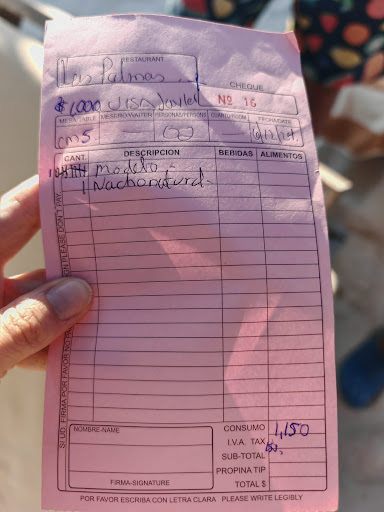 RESTAURANT
Las Palmas
CHEQUE
$1000 VISA Javier
Nº 16
MESA/TABLE MESERO/WAITER PERSONAS/PERSONS CUARTO/ROOM FECHA/DATE
cm5
CANT. DESCRIPCION BEBIDAS ALIMENTOS
modelo
1 Nacho natural
NOMBRE-NAME
FIRMA-SIGNATURE
CONSUMO 1,150
I.V.A. TAX
SUB-TOTAL
PROPINA TIP
TOTAL $
POR FAVOR ESCRIBA CON LETRA CLARA PLEASE WRITE LEGIBLY